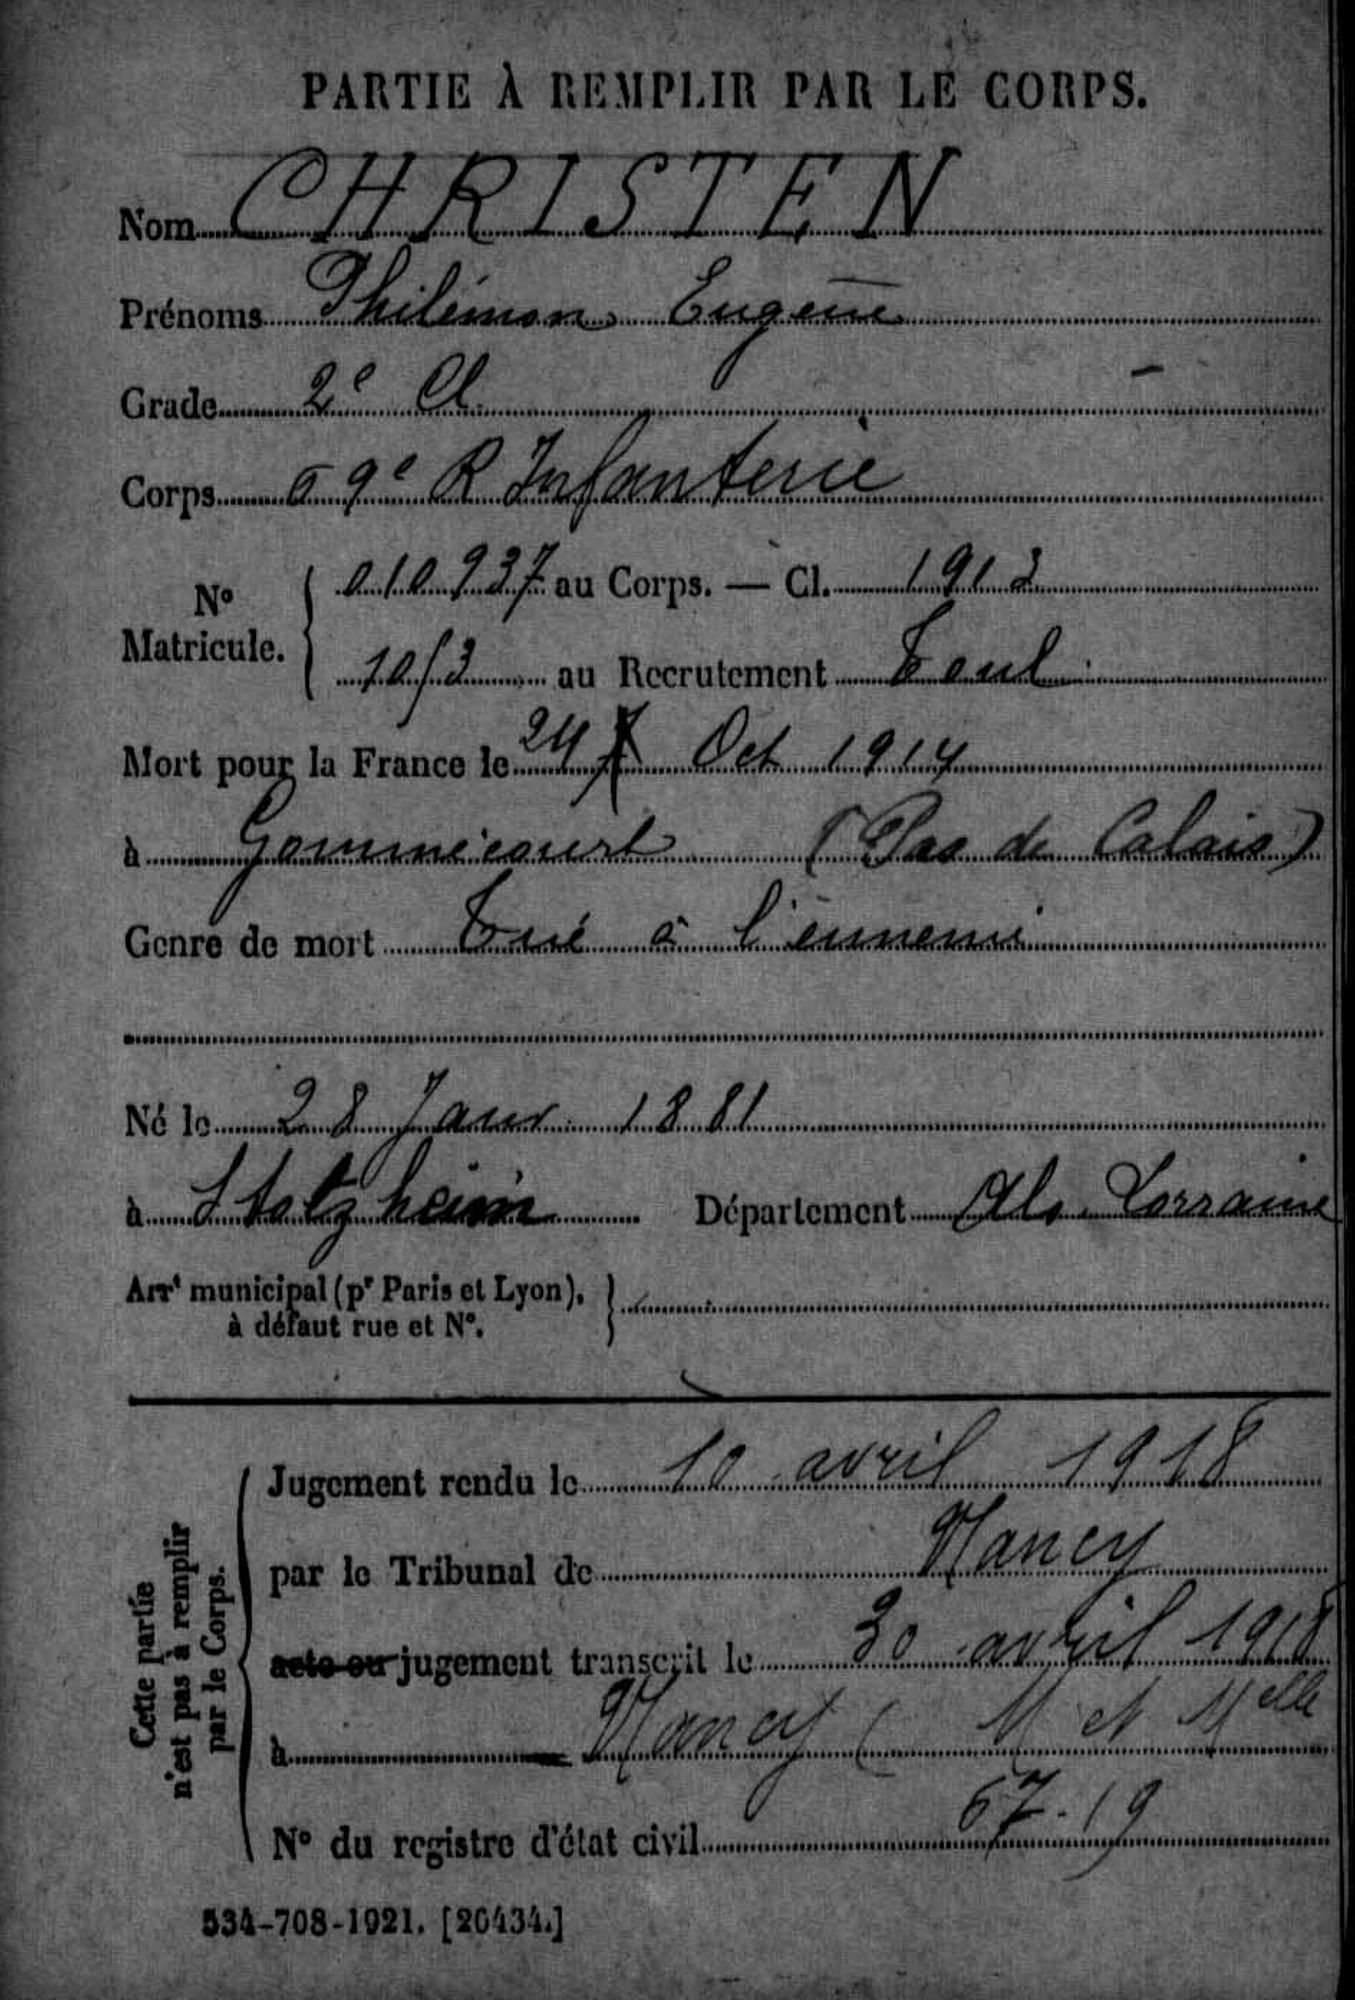 PARTIE À REMPLIR PAR LE CORPS.
Nom CHRISTEN
Prénoms Philémon Eugène
Grade 2e Cl
Corps 69e R Infanterie
No Matricule. 010937 au Corps. — Cl. 1913
1013 au Recrutement Toul
Mort pour la France le 24 Oct 1914
à Gommécourt (Pas de Calais)
Genre de mort Tué à l'ennemi
Né le 28 Janv. 1881
à Stotzheim Département Als. Lorraine
Arrt municipal (pr Paris et Lyon),
à défaut rue et No.
Cette partie
n'est pas à remplir
par le Corps.
Jugement rendu le 10 avril 1918
par le Tribunal de Nancy
acte ou jugement transcrit le 30 avril 1918
à Nancy (M et Melle
No du registre d'état civil 67-19
534-708-1921. [26434.]